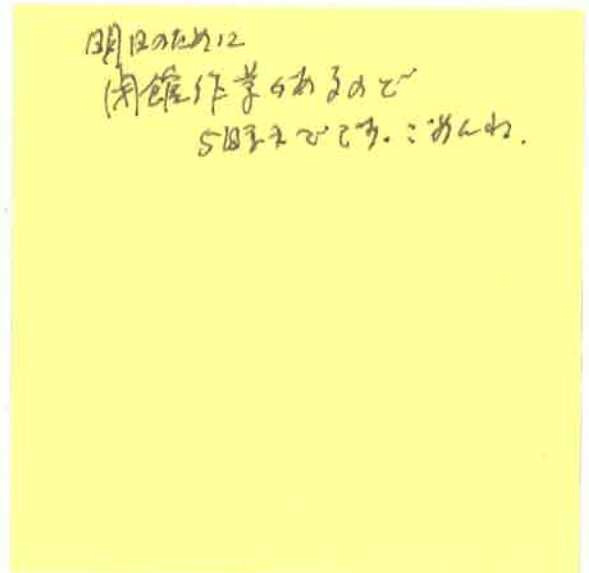 明日のために
閉館作業があるので
5時までです。ごめんね.